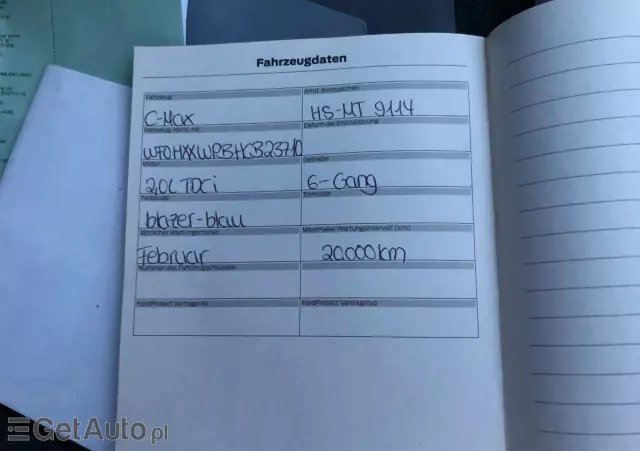 Fahrzeugdaten
Fahrzeug
Amtl. Kennzeichen
C-Max
HS-MT 9114
Fahrzeug-Ident.-Nr.
Datum der Erstzulassung
Motor
Getriebe
2,0L TDCi
6-Gang
Farbcode
Trimcode
blazer-blau
Jährlicher Wartungsmonat
Maximales Wartungsintervall (km)
Februar
20.000km
Nummer des Fahrzeugschlüssels
FordProtect Vertrags-Nr.
FordProtect Vertragstyp
GetAuto.pl